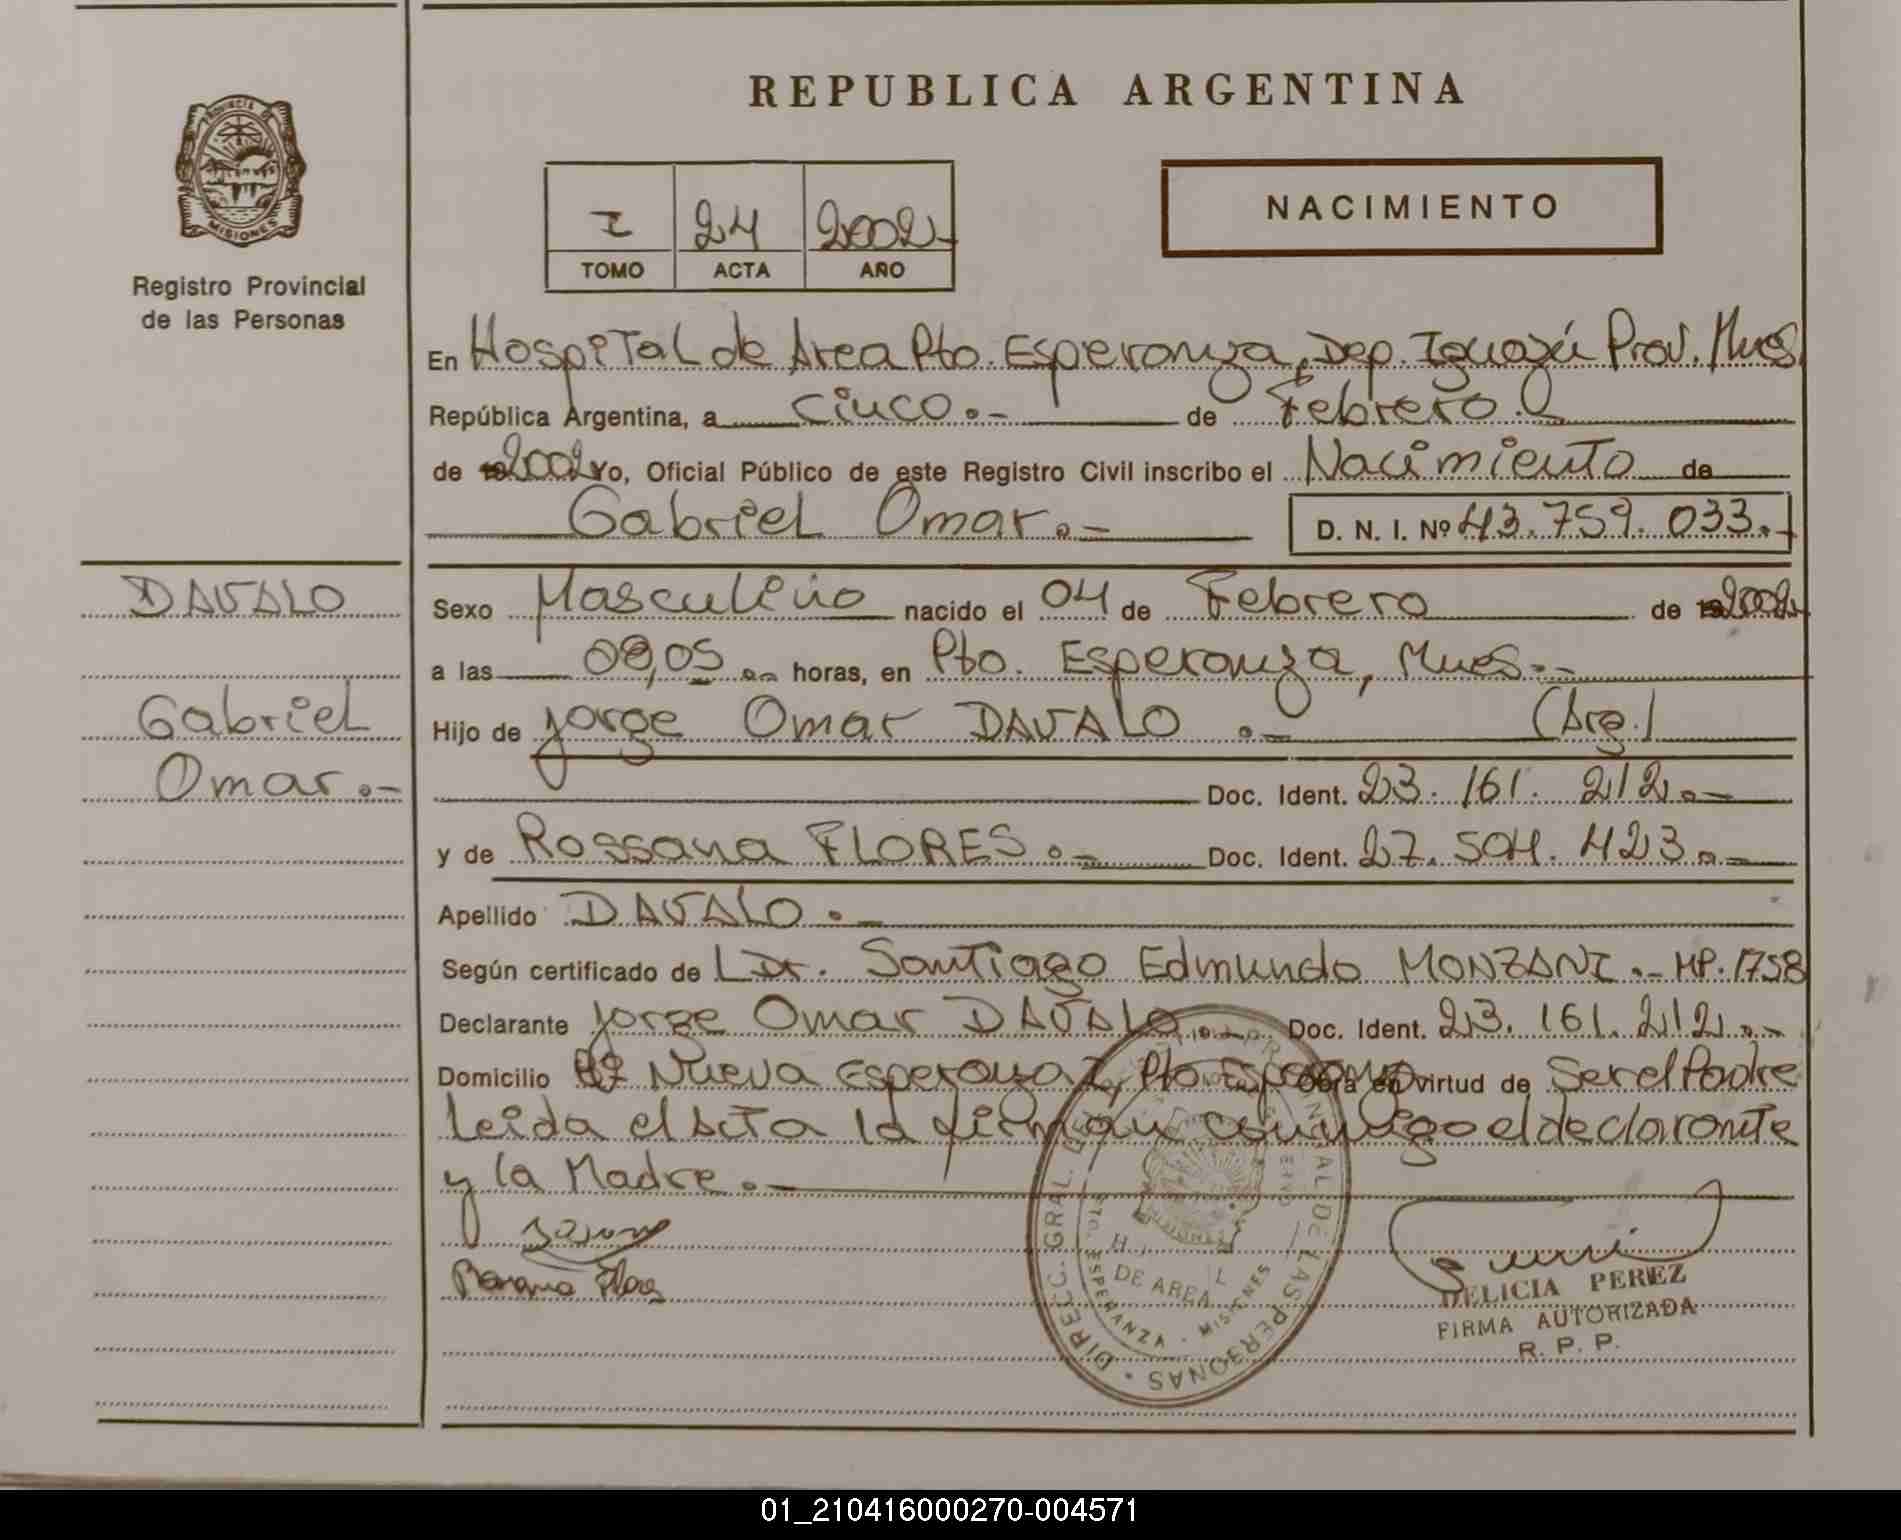 REPUBLICA ARGENTINA
PROVINCIA DE
MISIONES
Registro Provincial
de las Personas
I 24 2002.-
TOMO ACTA AÑO
NACIMIENTO
En Hospital de Area Pto. Esperanza, Dep. Iguazú Prov. Mnes.
República Argentina, a cinco.- de Febrero.
de 2002 Yo, Oficial Público de este Registro Civil inscribo el Nacimiento de
Gabriel Omar.- D. N. I. Nº 43.759.033.-
DAVALO
Gabriel
Omar.-
Sexo Masculino nacido el 04 de Febrero de 2002.-
a las 08,05.- horas, en Pto. Esperanza, Mnes.-
Hijo de Jorge Omar DAVALO.- (Arg.)
Doc. Ident. 23.161.212.-
y de Rossana FLORES.- Doc. Ident. 27.504.423.-
Apellido DAVALO.-
Según certificado de L Dr. Santiago Edmundo MONZANI.- MP. 1758
Declarante Jorge Omar DAVALO.- Doc. Ident. 23.161.212.-
Domicilio Bº Nueva Esperanza I, Pto Esperanza Obra en virtud de Ser el Padre
Leida el Acta la firman conmigo el declarante
y la Madre.-
Flores
DIRECC. GRAL. DEL REG. PROVINCIAL DE LAS PERSONAS
DE AREA
PTO. ESPERANZA - MISIONES
DELICIA PEREZ
FIRMA AUTORIZADA
R. P. P.
01_210416000270-004571